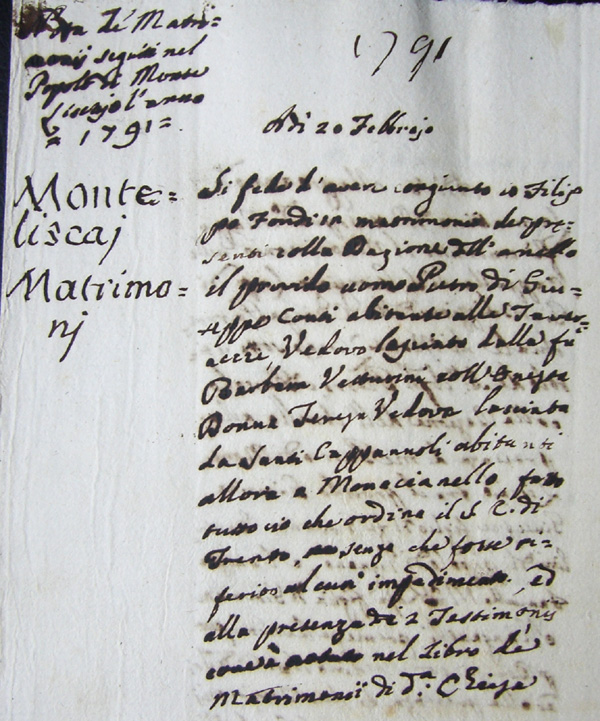 Nota de' Matri=
monij seguiti nel
Popolo di Monte
Liscajo l'anno
= 1791 =
1791
Adi 20 Febbrajo
Monte=
liscaj
Matrimo=
nj
Si fede d'aver congiunto io Filip
po Fondi in matrimonio de pre=
senti colla Dazione dell'anello
il provido uomo Pietro di Giu=
seppe Conti abitante alle Taver=
Vedovo lasciato dalla fù
Barbera Vetturini coll'Onesta
Donna Teresa Vedova lasciata
da Santi Cappannoli abitanti
allora a Monacianello, fatto
tutto ciò che ordina il S. C. di
Trento, senza che fosse ri=
ferito alcun' impedimento, ed
alla presenza di 2 Testimonij
come è notato nel Libro de'
Matrimonij di d.ª Chiesa